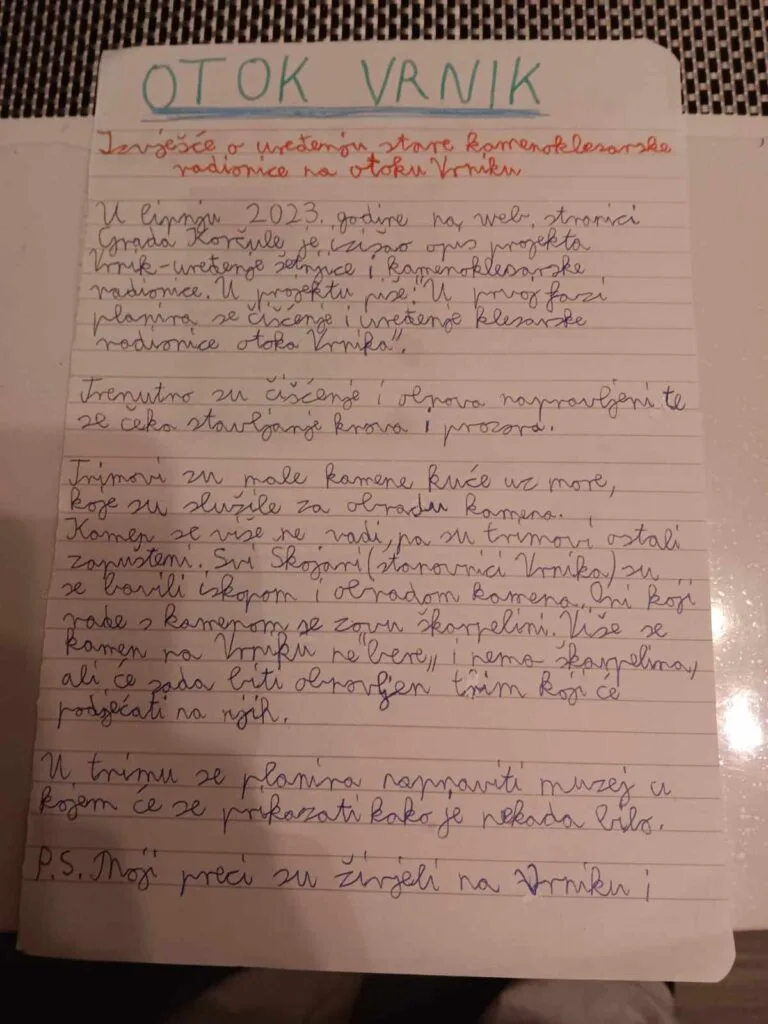 OTOK VRNIK
Izvješće o uređenju stare kamenoklesarske
radionice na otoku Vrniku
U lipnju 2023. godine na web stranici
Grada Korčule je izišao opis projekta
Vrnik-uređenje šetnjice i kamenoklesarske
radionice. U projektu piše:"U prvoj fazi
planira se čišćenje i uređenje klesarske
radionice otoka Vrnika".
Trenutno su čišćenje i obnova napravljeni te
se čeka stavljanje krova i prozora.
Trimovi su male kamene kuće uz more,
koje su služile za obradu kamena.
Kamen se više ne vadi, pa su trimovi ostali
zapušteni. Svi Škojari (stanovnici Vrnika) su
se bavili iskopom i obradom kamena. Oni koji
rade s kamenom se zovu škarpelini. Više se
kamen na Vrniku ne "bere" i nema škarpelina,
ali će sada biti obnovljen trim koji će
podsjećati na njih.
U trimu se planira napraviti muzej u
kojem će se prikazati kako je nekada bilo.
P.S. Moji preci su živjeli na Vrniku i